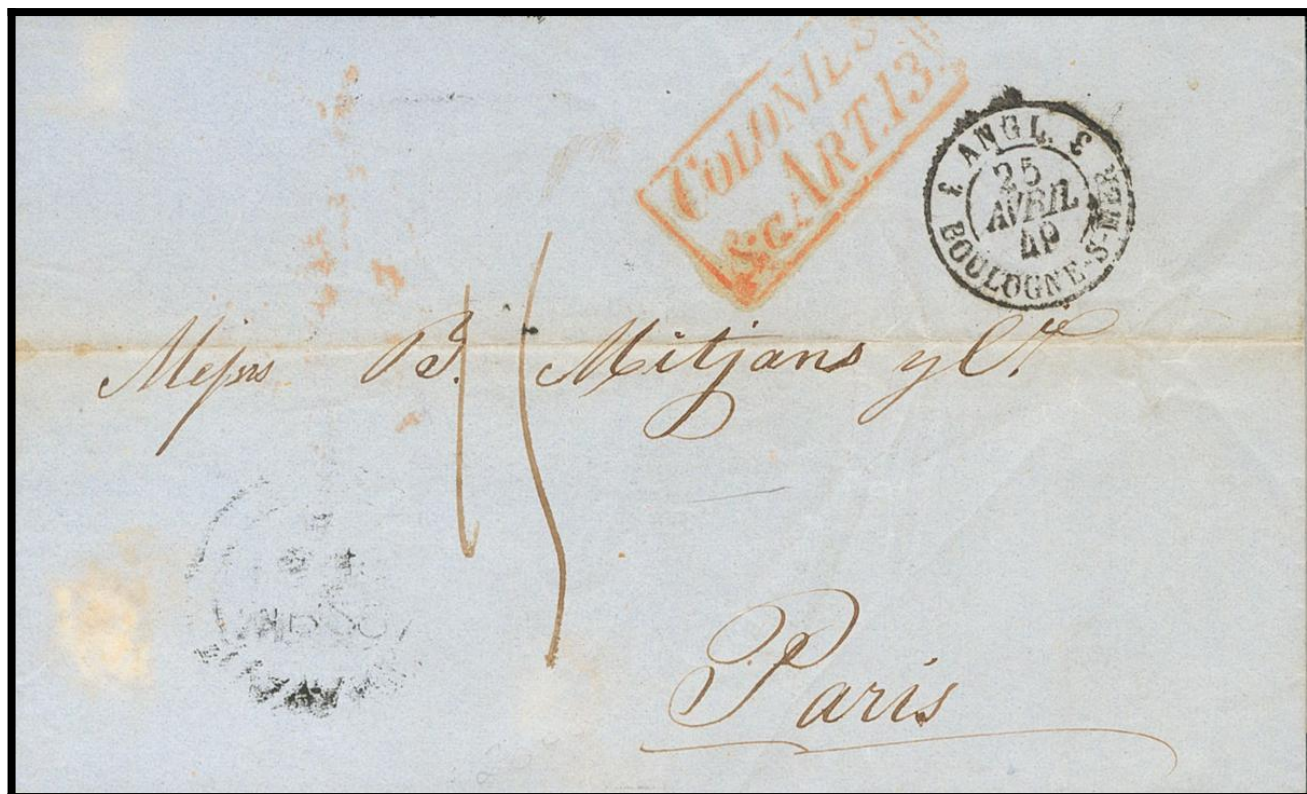 COLONIES
&c.ART.13.
ANGL.
25
AVRIL
49
BOULOGNE-S-MER
Messrs B. Mitjans y Ca.
15
Paris